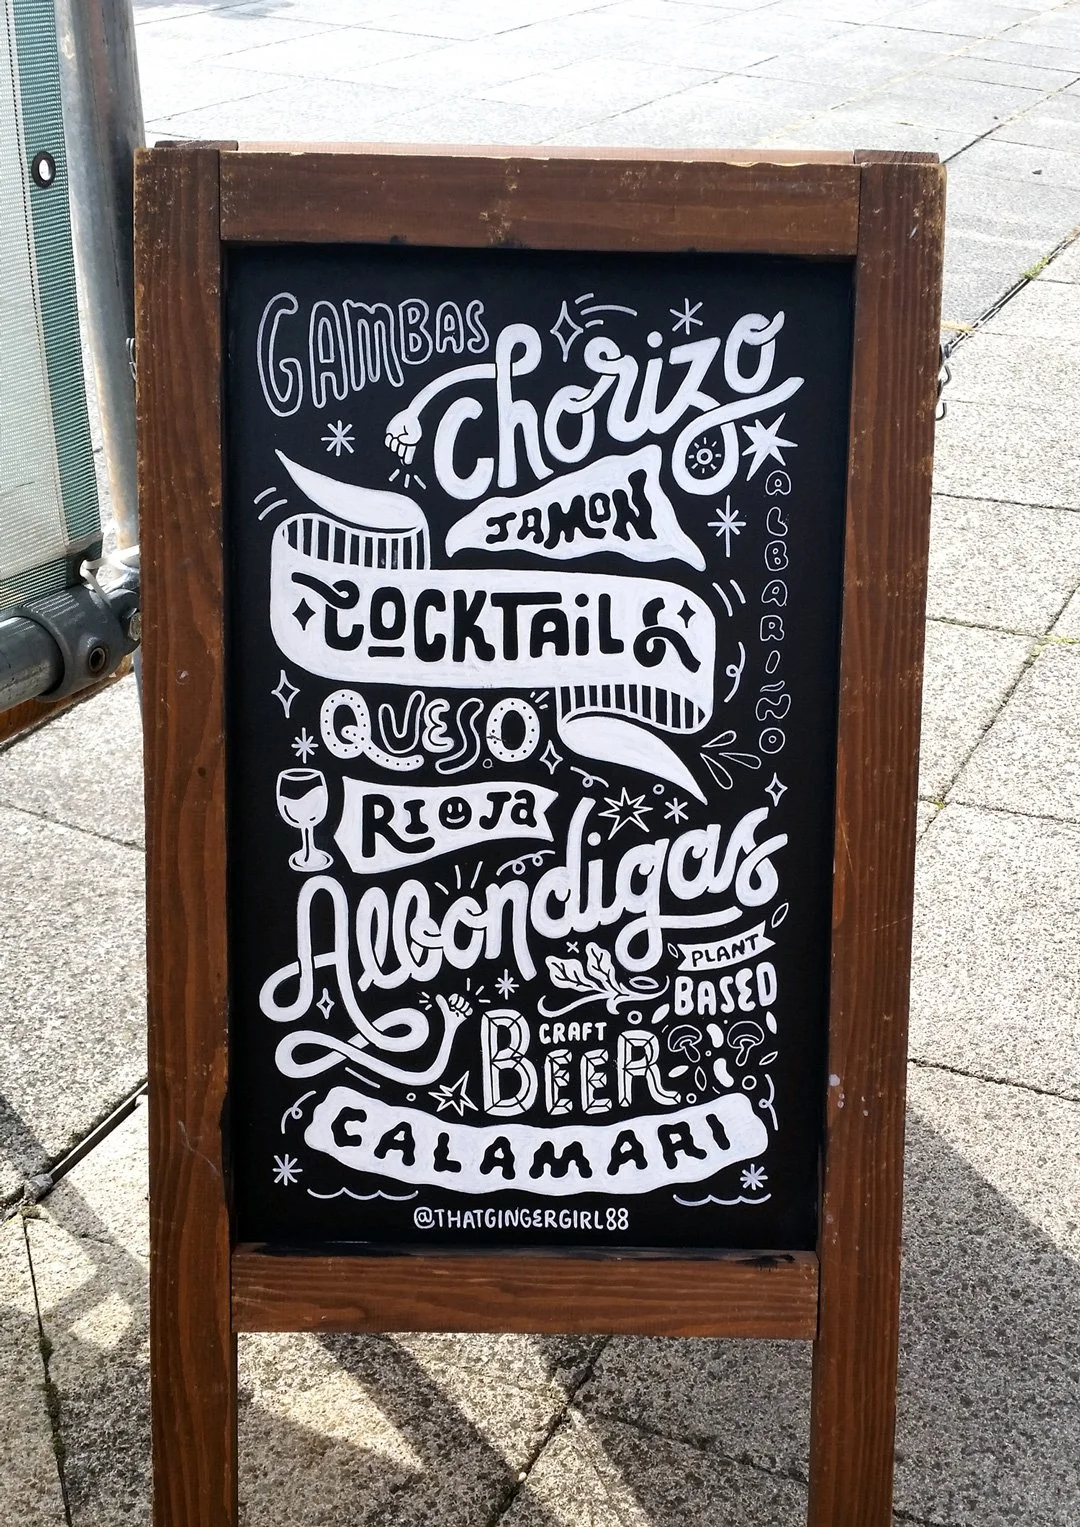 GAMBAS
chorizo
JAMON
ALBARINO
COCKTAILS
QUESO
RIOJA
Albondigas
PLANT
BASED
CRAFT
BEER
CALAMARI
@THATGINGERGIRL88